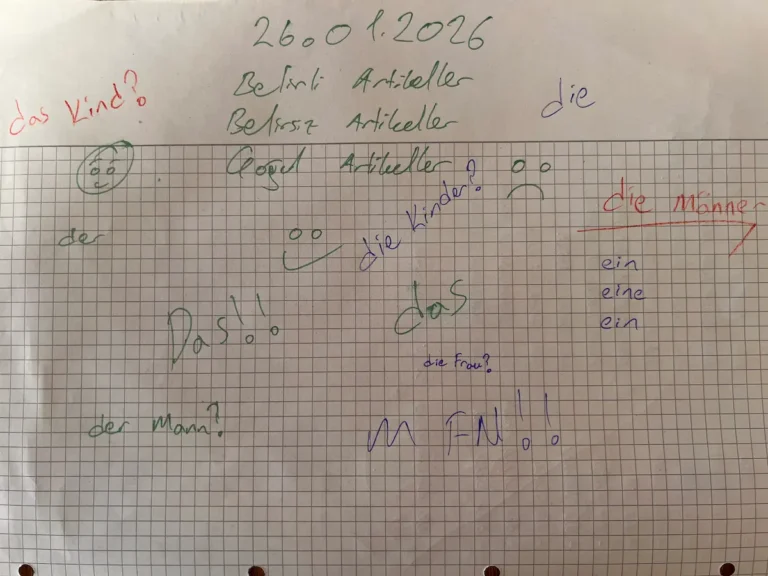 26.01.2026
Belirli Artikeller
das Kind?
die
Belirsiz Artikeller
Çoğul Artikeller
die Kinder?
die Männer
der
ein
eine
ein
Das!!
das
die Frau?
der Mann?
M FN!!